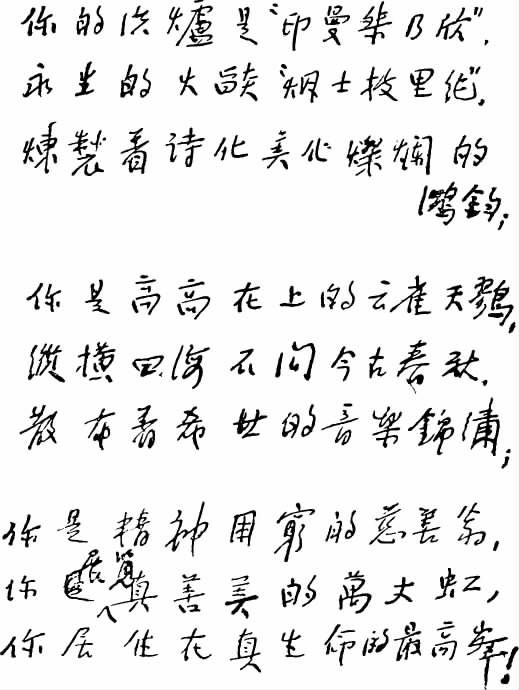 你的洪爐是“印曼桀乃欣”,
永生的火燄“烟士披里纯”,
煉製着诗化美化燦爛的
鴻鈞;
你是高高在上的云雀天鷚,
縱横四海不问今古春秋,
散布着希世的音樂錦繡;
你是精神困窮的慈善翁,
你展覽真善美的萬丈虹,
你居住在真生命的最高峯!